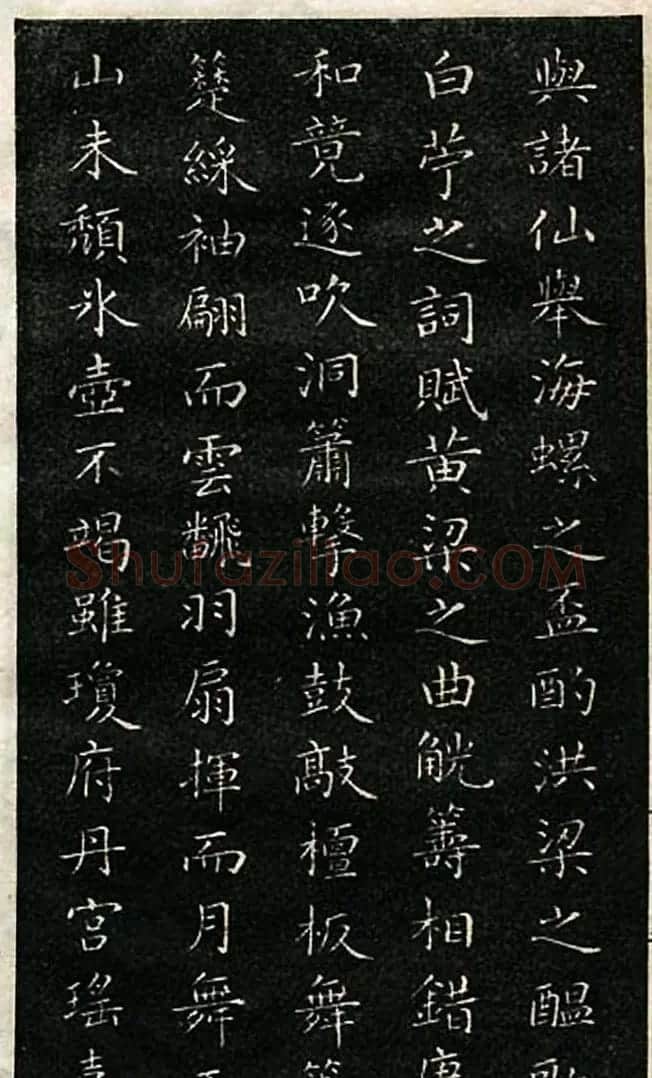 與諸仙舉海螺之盃酌洪梁之醞歌
白苧之詞賦黄梁之曲觥籌相錯賡
和競逐吹洞簫擊漁鼓敲檀板舞
楚綵袖翩而雲翻羽扇揮而月舞
山未頹氷壺不竭雖瓊府丹宫瑶
Shufaziliao.COM